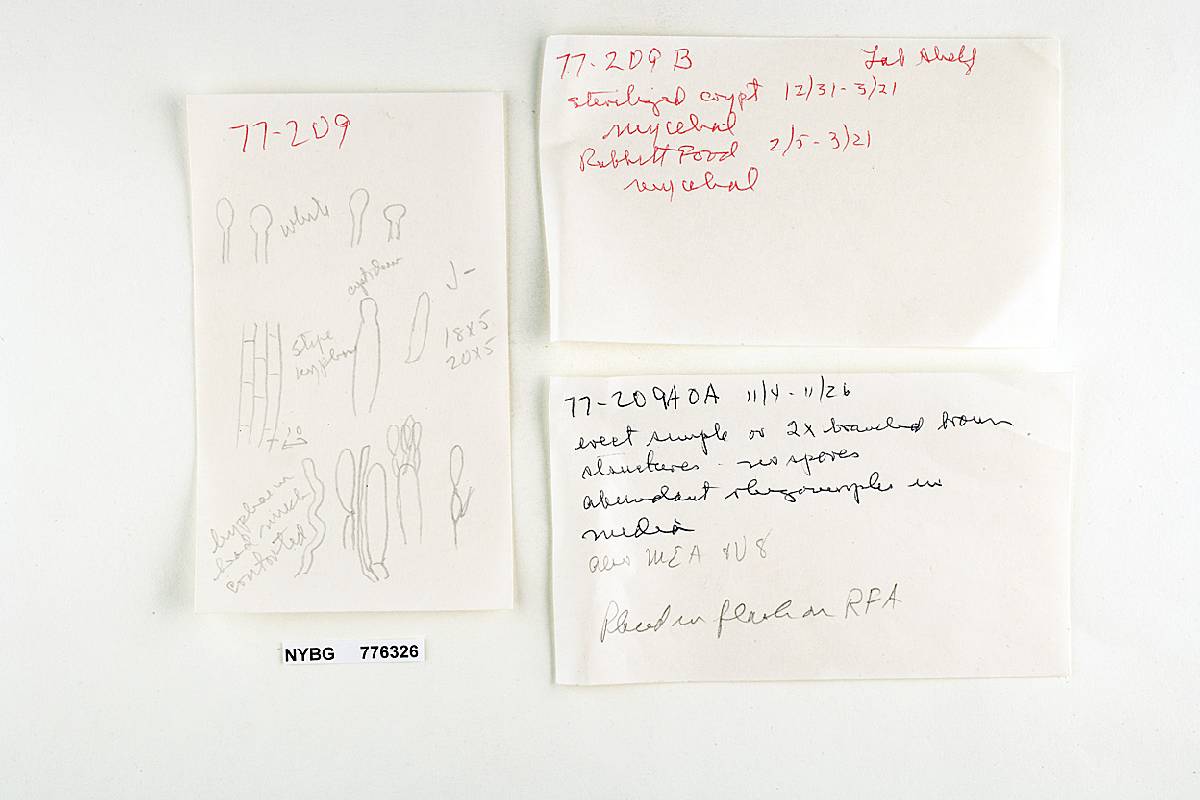 77-209
white
cystidium
√-
stipe
hyphae
18x5
20x5
10
hyphae in
bad much
contorted
NYBG 776326
77-209 B Lab shelf
sterilized crypt 12/31-3/21
mycelial
Rabbitt Food 2/5-3/21
mycelial
77-209A 0A 11/4-11/26
erect simple or 2x branched brown
structures - no spores
abundant rhizomorphs in
media
also MEA &V8
Placed in flask on RFA